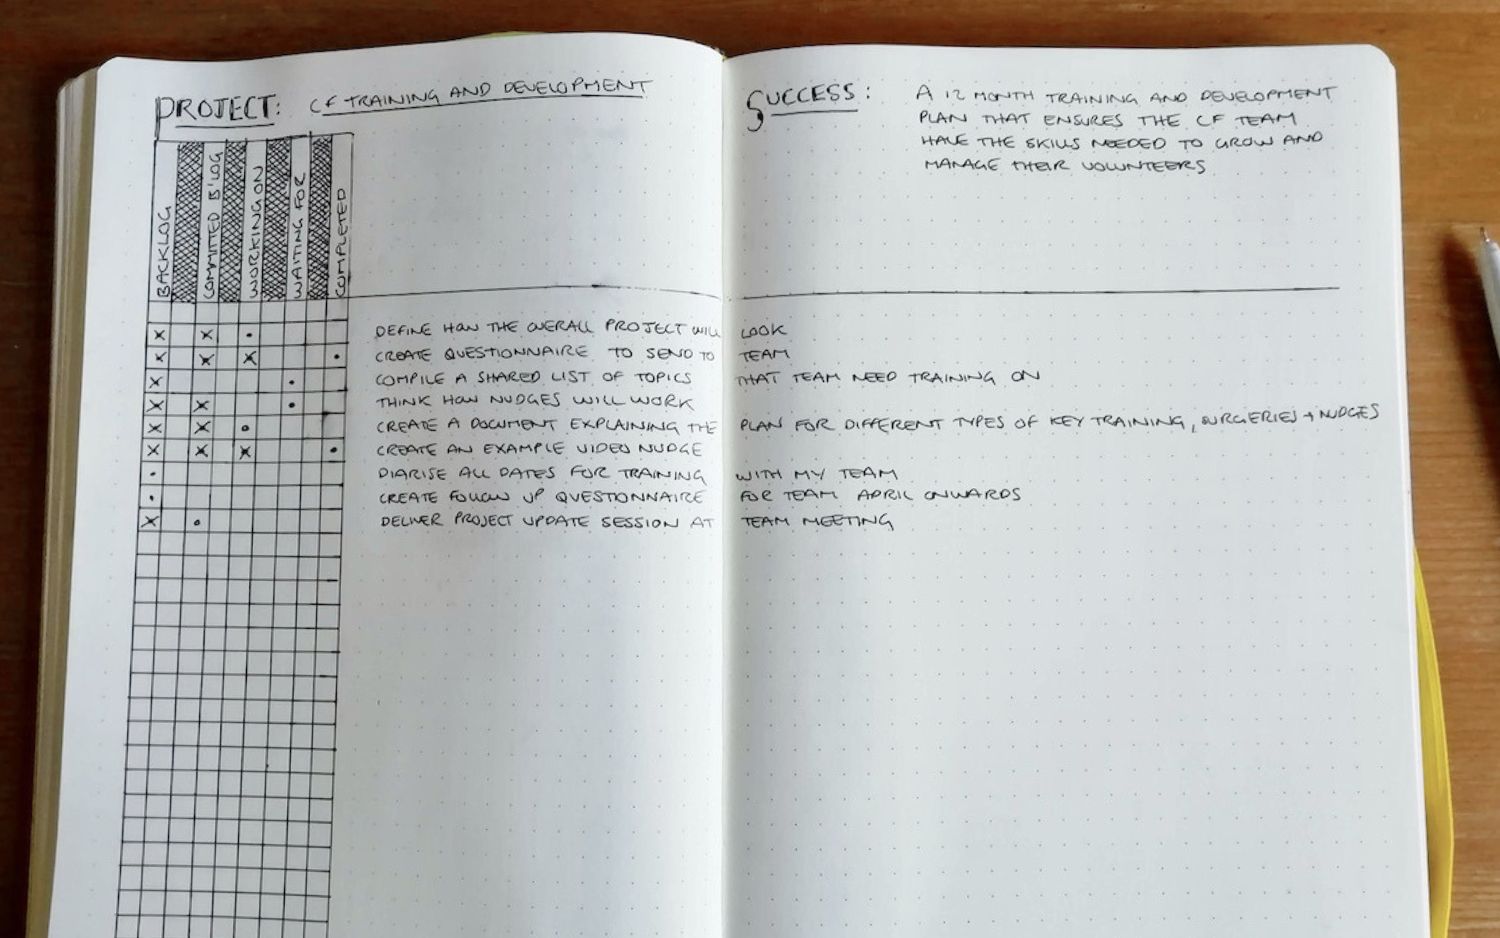 PROJECT: CF TRAINING AND DEVELOPMENT
BACKLOG
COMMITTED B'LOG
WORKING ON
WAITING FOR
COMPLETED
SUCCESS: A 12 MONTH TRAINING AND DEVELOPMENT
PLAN THAT ENSURES THE CF TEAM
HAVE THE SKILLS NEEDED TO GROW AND
MANAGE THEIR VOLUNTEERS
X X • DEFINE HOW THE OVERALL PROJECT WILL LOOK
X X X • CREATE QUESTIONNAIRE TO SEND TO TEAM
X • COMPILE A SHARED LIST OF TOPICS THAT TEAM NEED TRAINING ON
X X • THINK HOW NUDGES WILL WORK
X X • CREATE A DOCUMENT EXPLAINING THE PLAN FOR DIFFERENT TYPES OF KEY TRAINING, SURGERIES + NUDGES
X X X • CREATE AN EXAMPLE VIDEO NUDGE
• DIARISE ALL DATES FOR TRAINING WITH MY TEAM
• CREATE FOLLOW UP QUESTIONNAIRE FOR TEAM APRIL ONWARDS
X • DELIVER PROJECT UPDATE SESSION AT TEAM MEETING